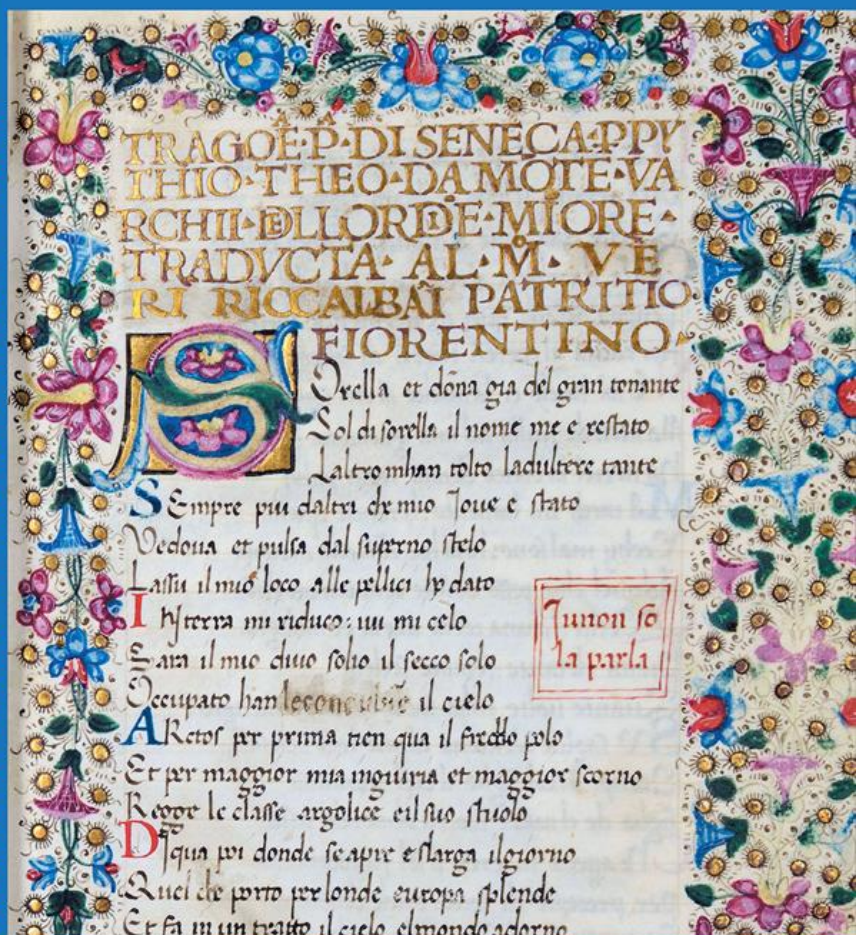 TRAGOE·P·DI SENECA·P·PY
THIO·THEO·DA MŌTE·VA
RCHII·DELLORDIE·MIORE·
TRADVCTA·AL·M·VE
RI RICCALBAI PATRITIO
FIORENTINO·
SOrella et dōna gia del gran tonante
Sol di sorella il nome me e restato
Laltro mhan tolto ladultere tante
SEmpre piu daltri che mio Joue e stato
Vedoua et pulsa dal superno stelo
Lassu il mio loco alle pellici ho dato
IN terra mi riduco: iui mi celo
Sara il mio diuo solio il secco solo
Junon so
la parla
Occupato han leconcubine il cielo
ARctos per prima tien qua il freddo polo
Et per maggior mia ingiuria et maggior scorno
Regge le classe argolice e il suo stuolo
DI qua poi donde se apre e slarga il giorno
Quel che porto per londe europa splende
Et fa in un tratto il cielo el mondo adorno